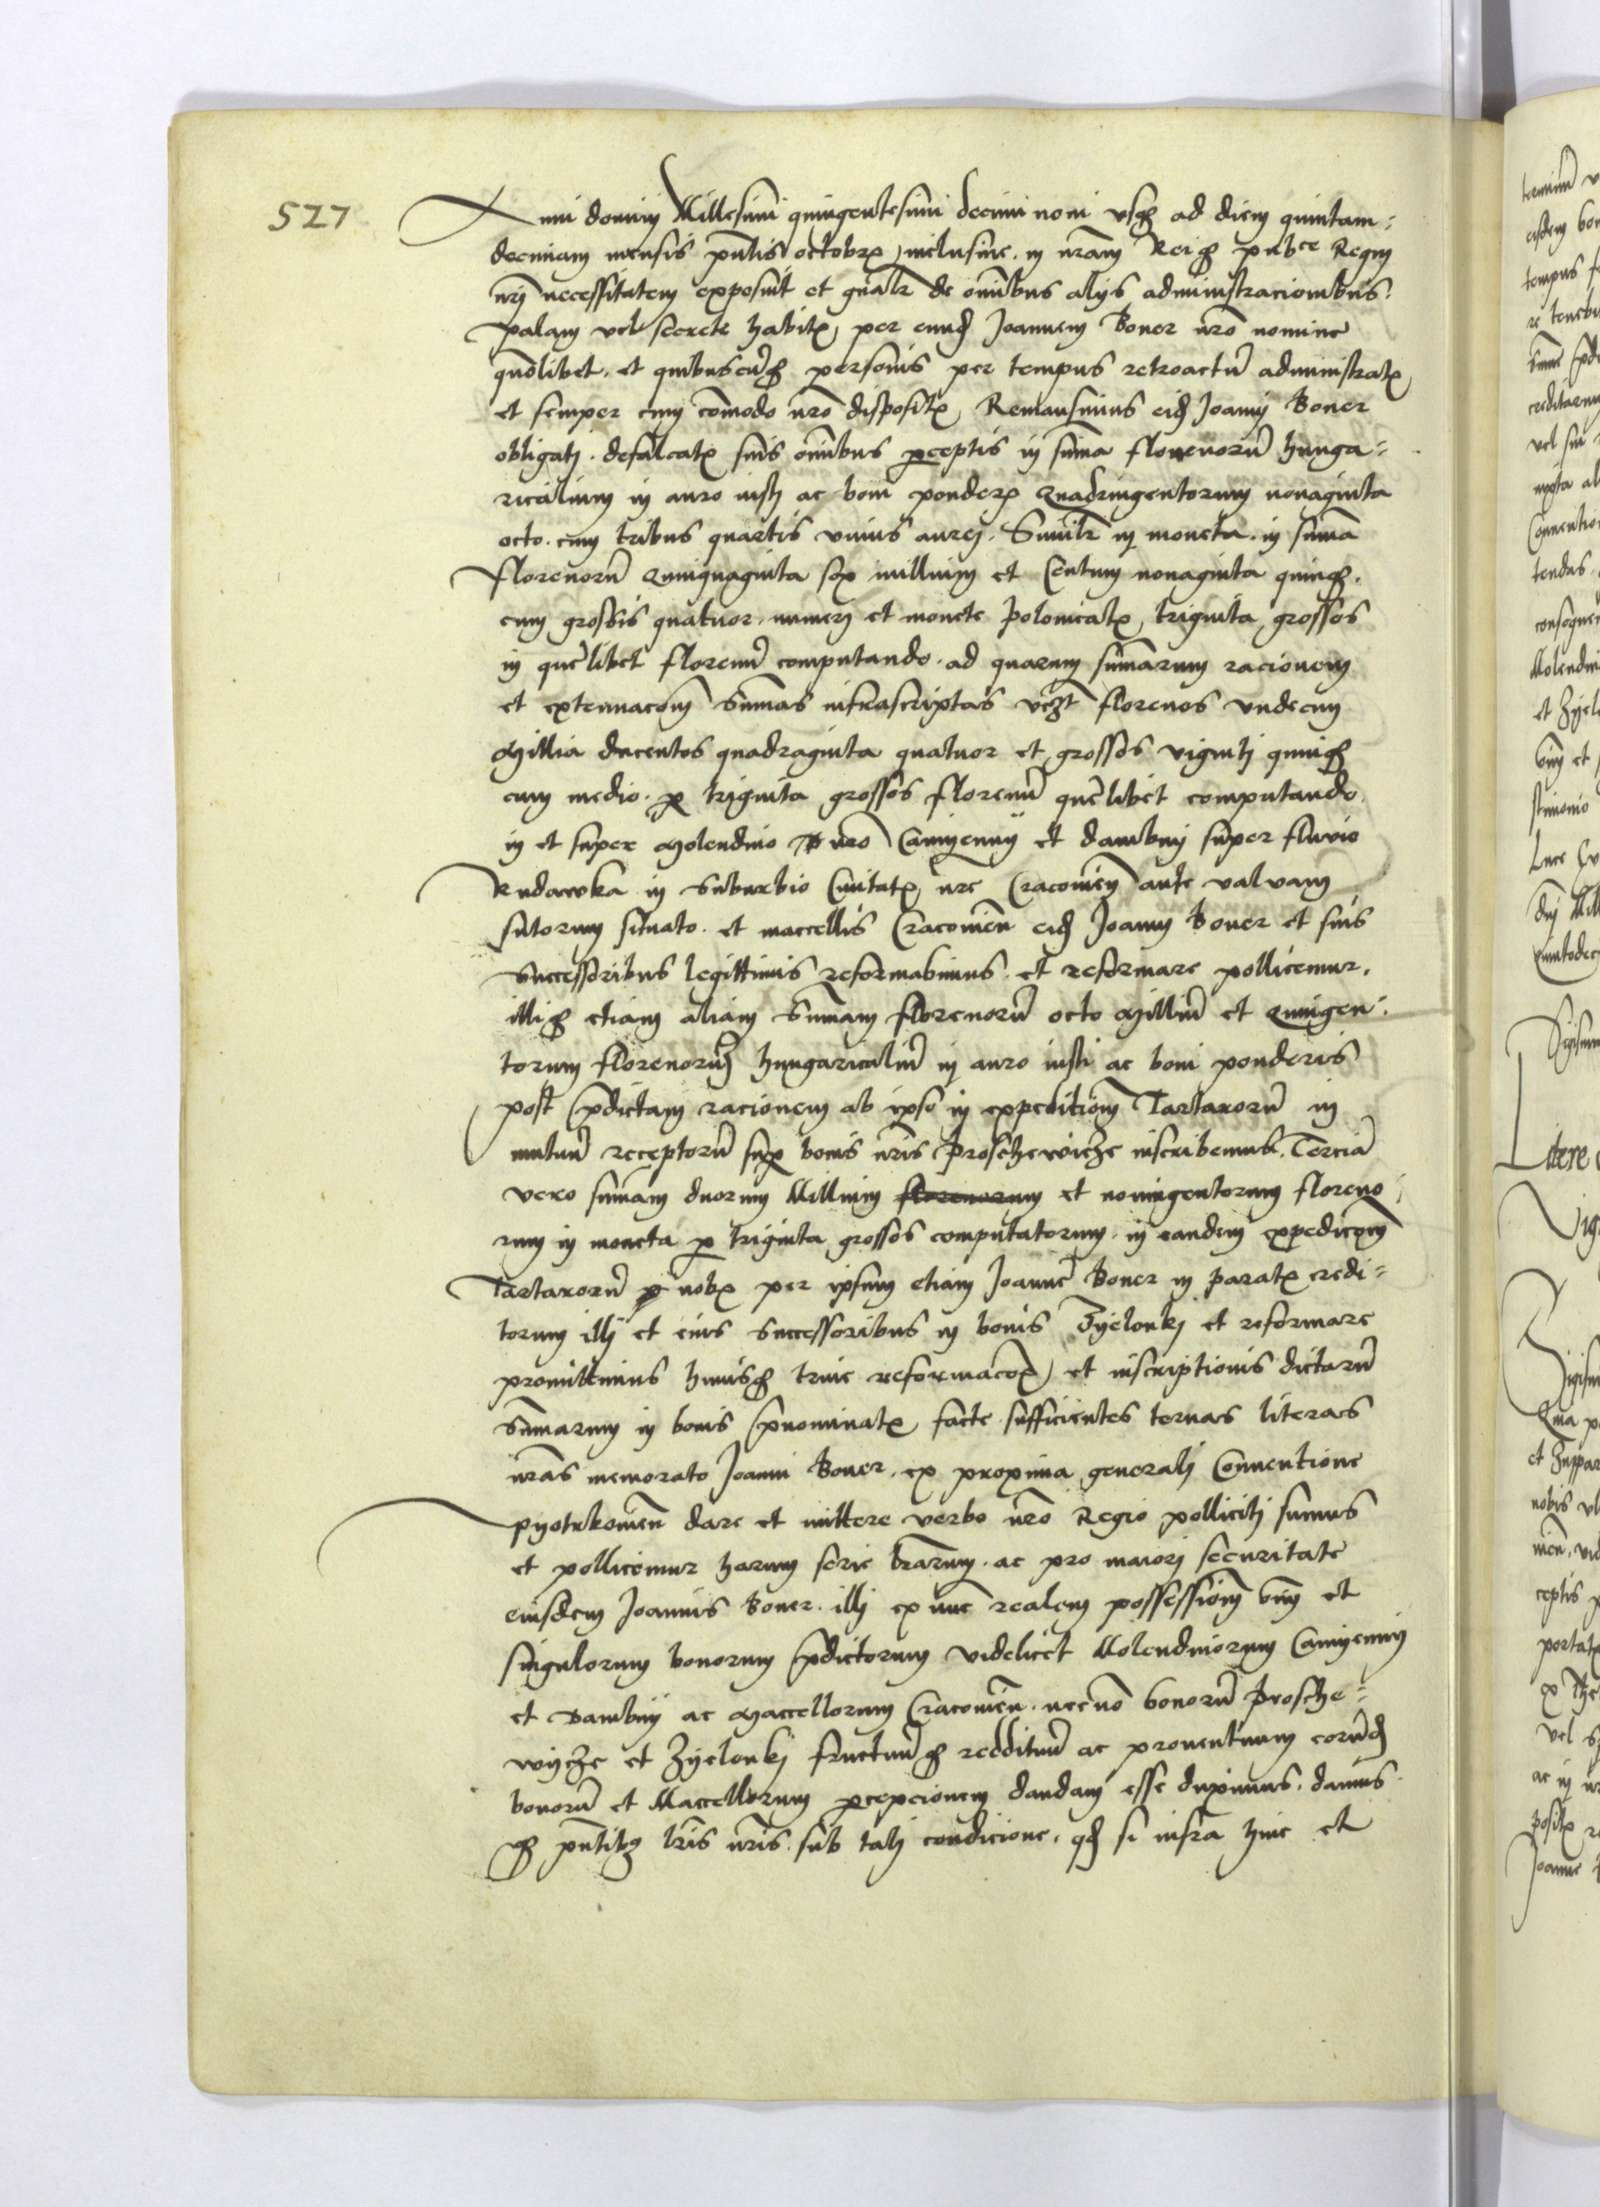 527
Anni domini Millesimi quingentesimi decimi noni vsq3 ad diem quintam=
decimam mensis pntis octobr inclusive. in nram Reiq3 pubce Regni
nrj necessitatem exposuit et gnalr de omibus alijs administracionibus.
palam vel secrete habitis per eund Joannem Boner nro nomine
qmodlibet. et quibuscuq3 personis per tempus retroactu administratis
et semper cum comodo nro dispositis Remansimus eid Joannj Boner
obligatj. defalcatis suis omibus perceptis in suma florenoru hunga=
ricalium in auro iustj ac boni ponderis Quadringentorum nonaginta
octo. cum tribus quartis vnius aurej. Similr in moneta. in suma
florenoru Quinquaginta sex millium et Centum nonaginta quinq3.
cum grossis quatuor. numerj et monete polonicalis triginta grossos
in quelibet florenu computando. ad quarum sumarum racionem
et extenuacom Sumas infrascriptas vczt florenos vndecim
Millia ducentos quadraginta quatuor et grossos vigintj quinq3
cum medio. per triginta grossos florenu quelibet computando
in et super Molendino nro Camyenny et dambny super fluvio
Rudawka in Suburbio Ciuitatis nre Cracovien ante valvam
sutorum situato. et maccellis Cracovien eid Joannj Boner et suis
Successoribus legittimis reformabimus. et reformare pollicemur.
illiq3 etiam aliam Sumam florenoru octo Milliu et Quingen=
torum florenoru hungaricaliu in auro iusti ac boni ponderis
post pdictam racionem ab ipso in expeditiom Tartaroru in
mutuu receptoru sup bonis nris Proschewicze inscribemus. Tercia
vero sumam duorum Millium florenorum et noningentorum floreno=
rum in moneta per triginta grossos computatorum. in eandem expedicom
Tartaroru p nobis per ipsum etiam Joanne Boner in paratis credi=
torum illj et eius Successoribus in bonis Zyelonkj et reformare
promittimus huiusq3 trine reformacois et inscriptionis dictaru
Sumarum in bonis pnominatis facte sufficientes ternas literas
nras memorato Joanni Boner. ex proxima generalj Conuentione
pyotrkovien dare et mittere verbo nro Regio pollicitj sumus
et pollicemur harum serie lrarum. ac pro maiorj securitate
eiusdem Joannis Boner. illj ex nuc realem possessiom oim et
singulorum bonorum pdictorum videlicet Molendinorum Camyenny
et Dambny ac Maccellorum Cracovien. necno bonoru Prosche=
wycze et Zyelonkj fructuu q3 reddituu ac prouentuum eorud
bonoru et Maccellorum percepcionem dandam esse duximus. damus
q3 pntib3 lris nris. sub talj condicione. qd si infra hinc et